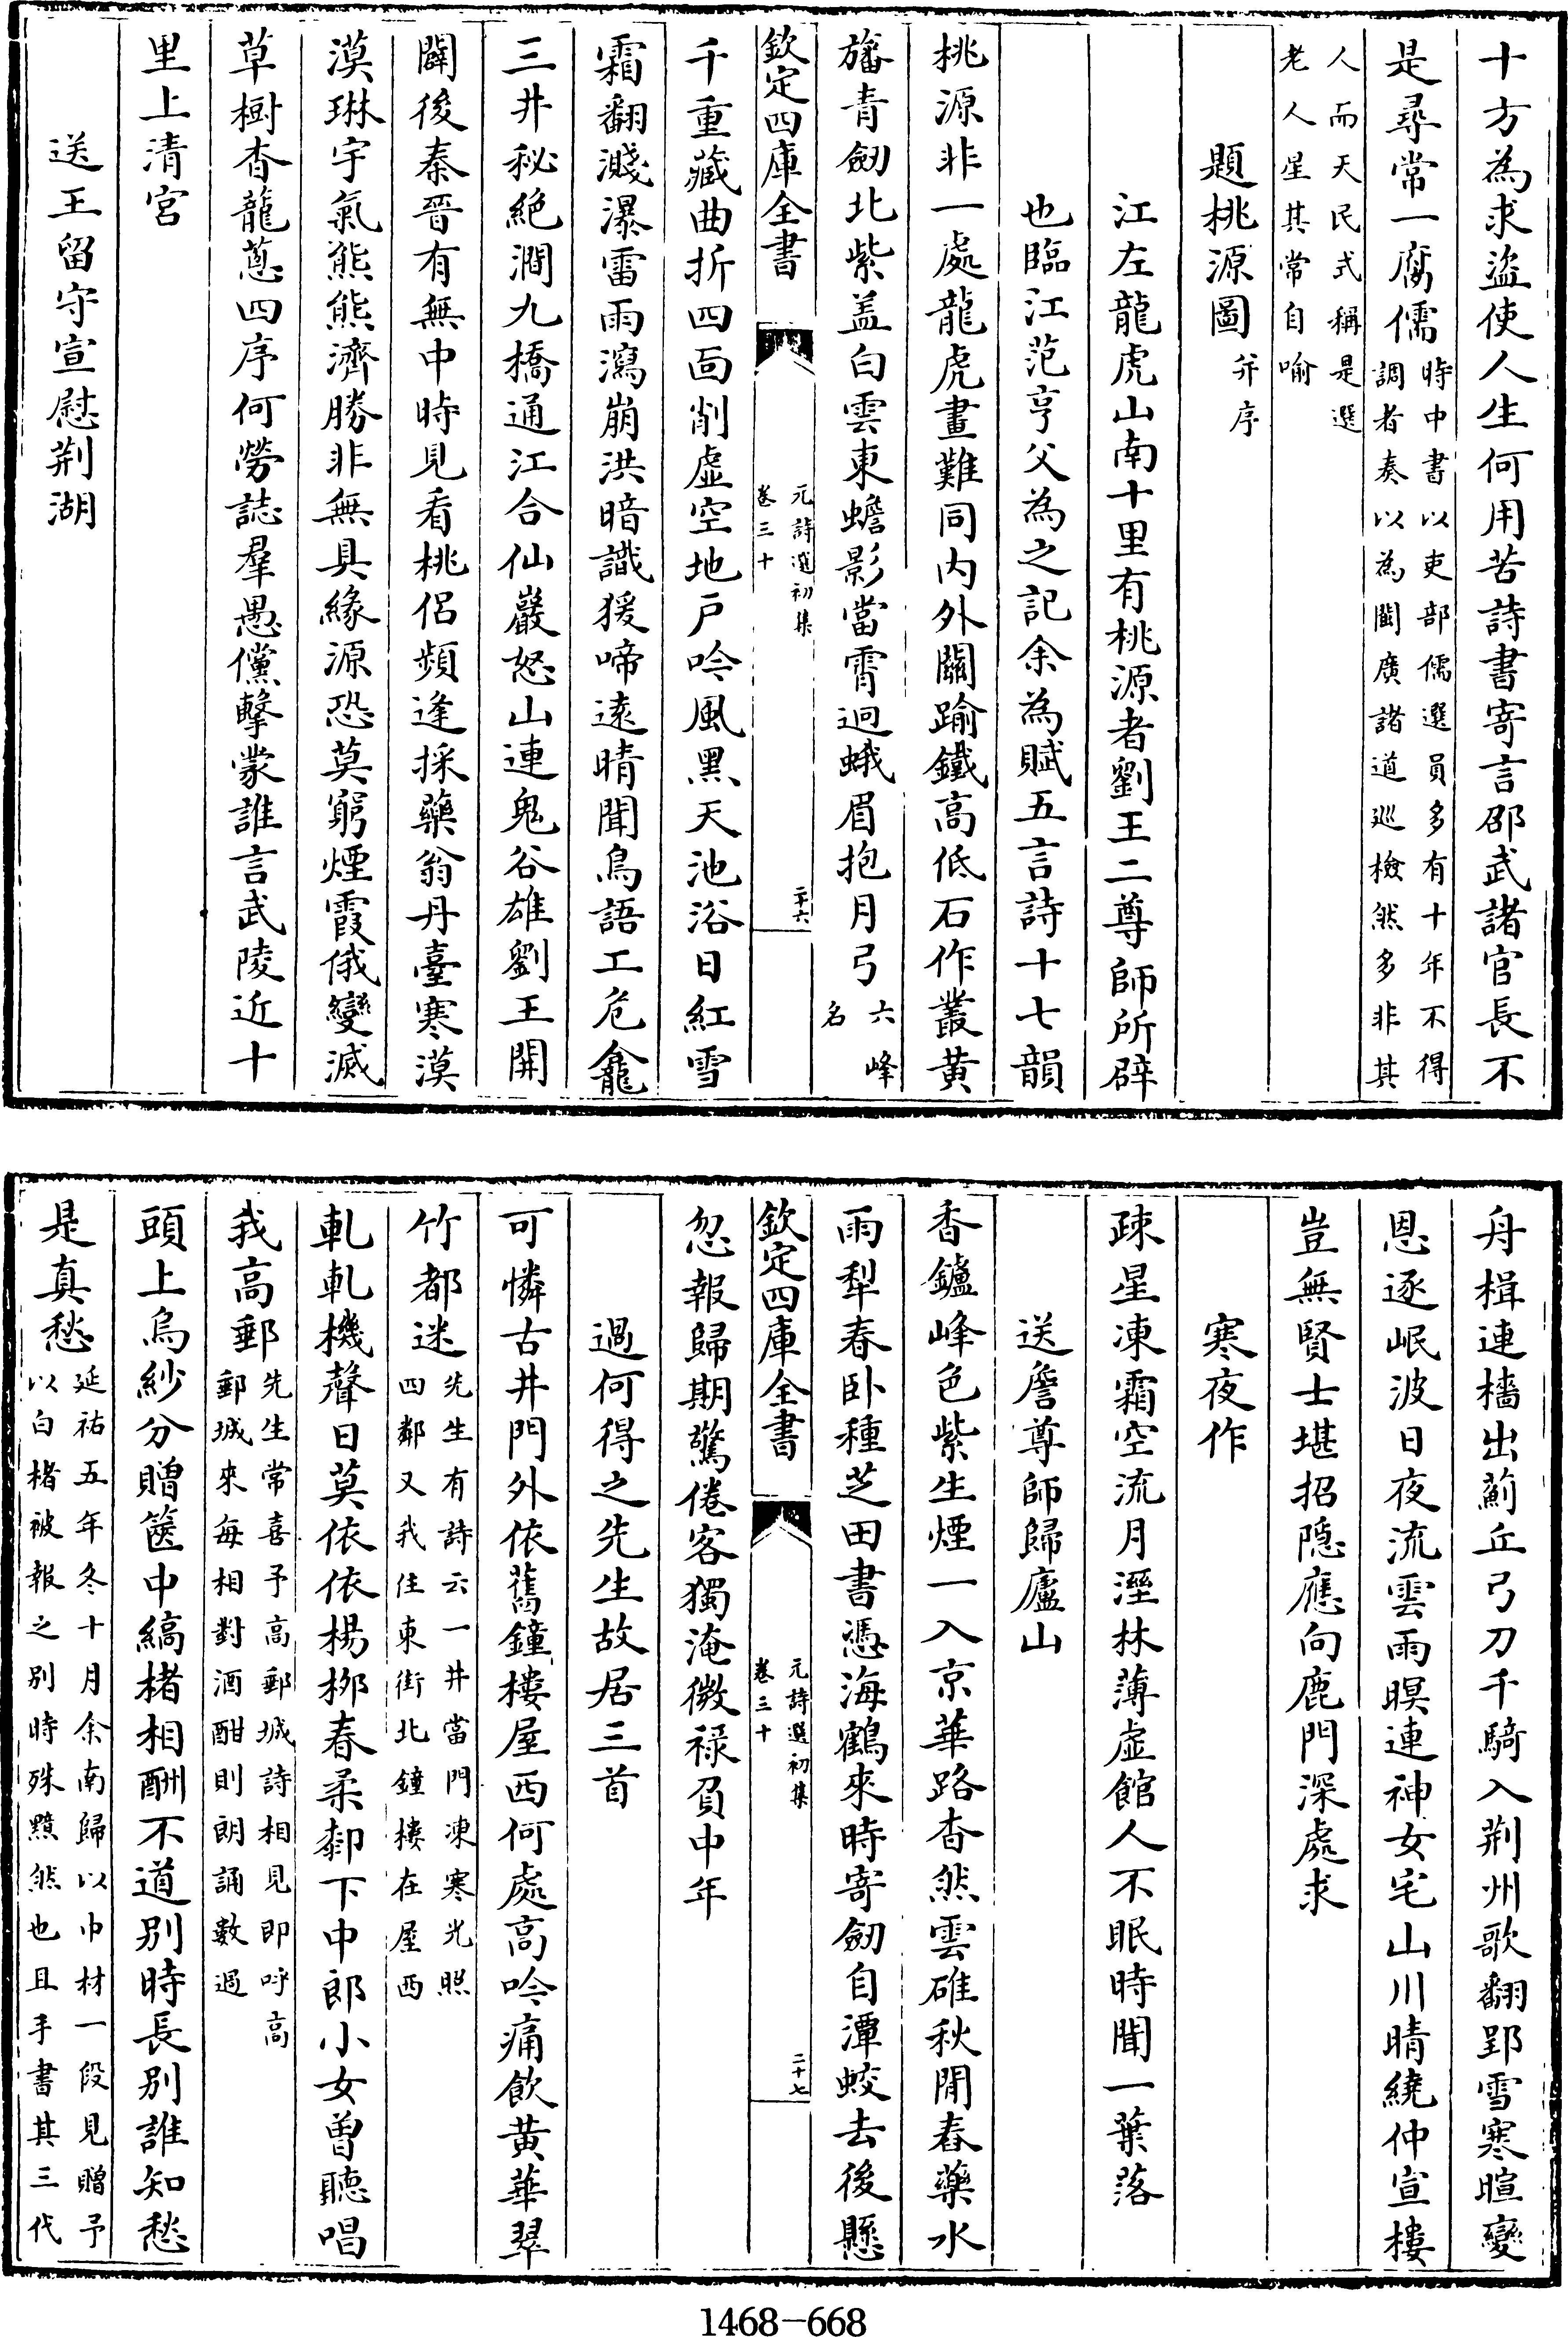 十方為求盜使人生何用苦詩書寄言邵武諸官長不
是尋常一腐儒時中書以吏部儒選員多有十年不得調者奏以為閩廣諸道巡檢然多非其
人而天民式稱是選老人星其常自喻
題桃源圖并序
江左龍虎山南十里有桃源者劉王二尊師所辟
也臨江范亨父為之記余為賦五言詩十七韻
桃源非一處龍虎畫難同内外關踰鐵高低石作叢黃
旛青劒北紫盖白雲東蟾影當霄迥蛾眉抱月弓六峰名
欽定四庫全書
元詩選初集
卷三十
二十六
千重藏曲折四面削虛空地户吟風黑天池浴日紅雪
霜翻濺瀑雷雨瀉崩洪暗識猨啼遠晴聞鳥語工危龕
三井秘絶澗九橋通江合仙巖怒山連鬼谷雄劉王開
闢後秦晉有無中時見看桃侣頻逢採藥翁丹臺寒漠
漠琳宇氣熊熊濟勝非無具緣源恐莫窮煙霞俄變滅
草樹杳龍蔥四序何勞誌羣愚儻擊蒙誰言武陵近十
里上清宮
送王留守宣慰荆湖
舟楫連檣出薊丘弓刀千騎入荆州歌翻郢雪寒暄變
恩逐岷波日夜流雲雨暝連神女宅山川晴繞仲宣樓
豈無賢士堪招隠應向鹿門深處求
寒夜作
疎星凍霜空流月溼林薄虛館人不眠時聞一葉落
送詹尊師歸廬山
香鑪峰色紫生煙一入京華路杳然雲碓秋閒舂藥水
雨犁春卧種芝田書憑海鶴來時寄劒自潭蛟去後懸
欽定四庫全書
元詩選初集
卷三十
二十七
忽報歸期驚倦客獨淹微禄負中年
過何得之先生故居三首
可憐古井門外依舊鐘樓屋西何處高吟痛飲黄華翠
竹都迷先生有詩云一井當門凍寒光照四鄰又我住東街北鐘樓在屋西
軋軋機聲日莫依依楊栁春柔鄣下中郎小女曽聽唱
我高郵先生常喜予高郵城詩相見即呼高郵城來每相對酒酣則朗誦數過
頭上烏紗分贈篋中縞楮相酬不道别時長别誰知愁
是真愁延祐五年冬十月余南歸以巾材一段見贈予以白楮被報之别時殊黯然也且手書其三代
1468-668